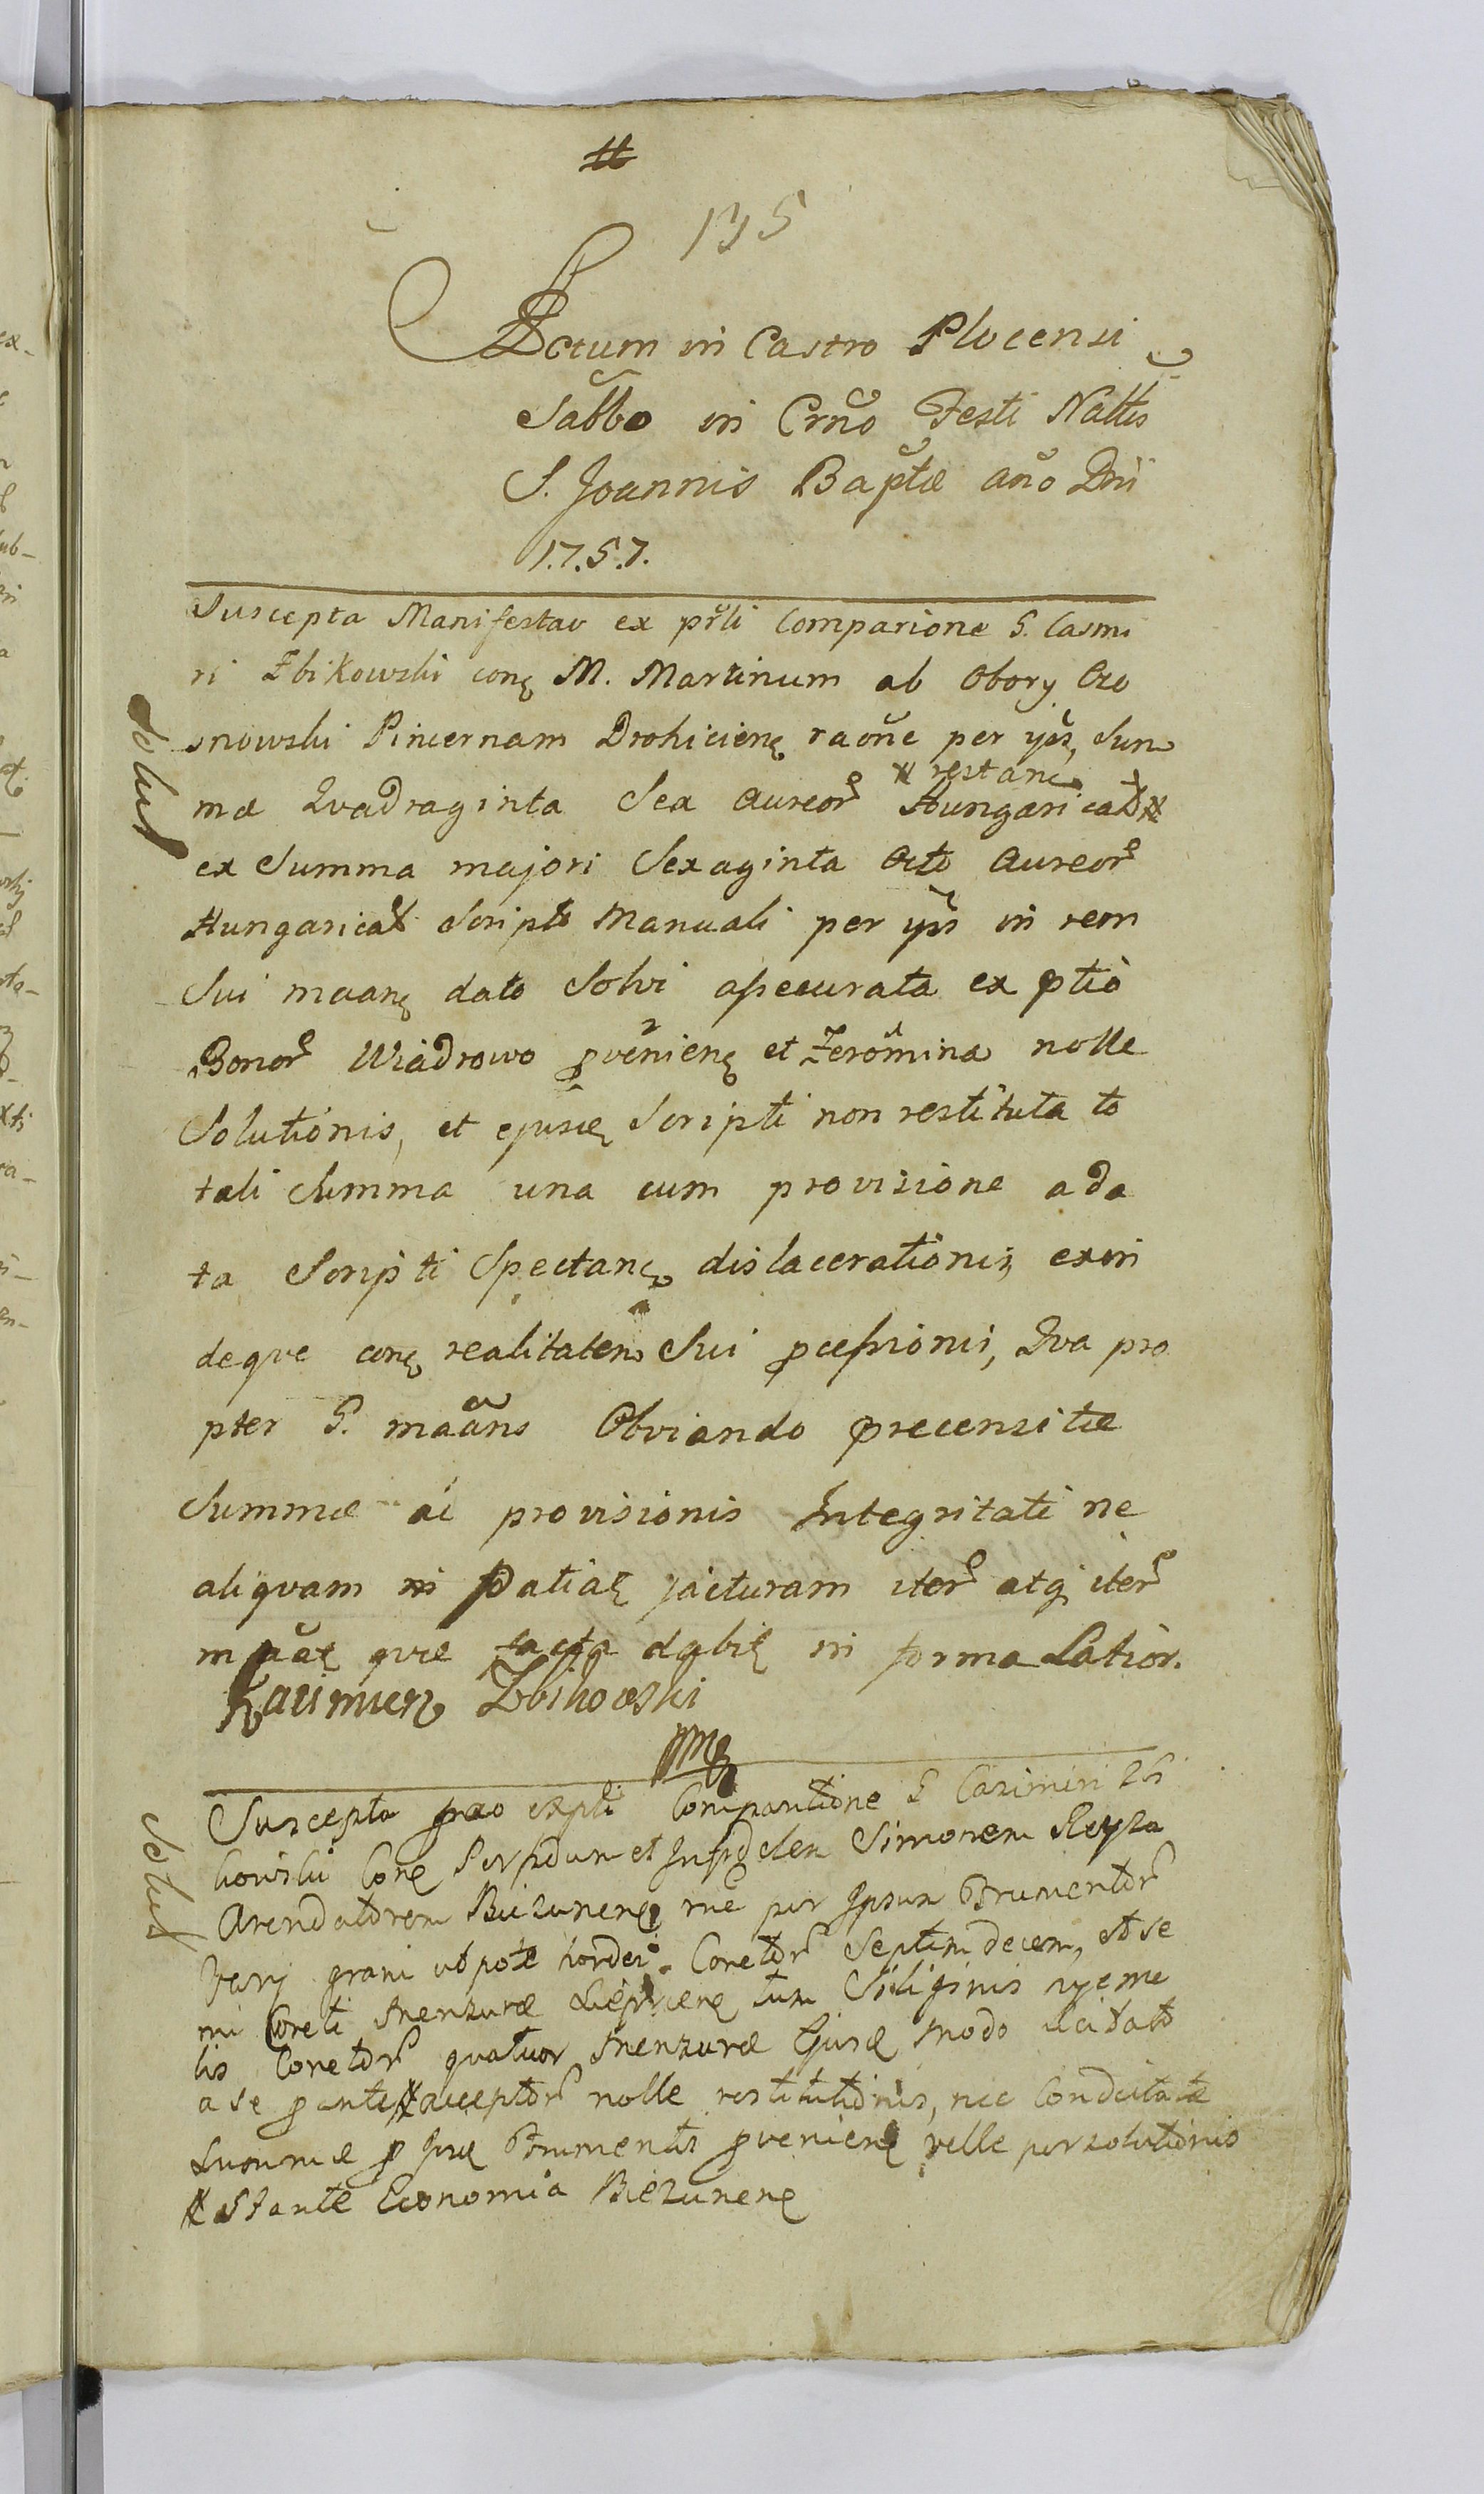 135
Actum in Castro Plocensi
Sabbo in Crno Festi Nattis
S. Joannis Baptæ ano Dni
1.7.5.7.
Suscepta Manifestao ex prli Comparione G. Casmi
ri Zbikowski conę M. Martinum ab Obory Ozo
snowski Pincernam Drohicienę raone per yps, Sum
mæ Qvadraginta Sex aureor Hungarical restanę
ex Summa majori Sexaginta Octo Aureor
Hungarical Scripto Manuali per yps in rem
Sui maanę dato Solvi assecurata ex ptio
Bonor Wiadrowo pvenienę et Zeromina nolle
Solutionis, et ejusdę Scripti non restituta to
tali Summa una cum provisione a da
ta Scripti Spectanę dislacerationis, exin
deqve conę realitatem Sui pcessionis, Qva pro
pter G. maans Obviando precensitæ
Summæ ac provisionis Integritati ne
aliqvam in patiat jacturam iter atq iter
maat qvæ facta dabit in forma Latior.
Kazimierz Zbikowski
mp
Solut
Suscepta Comparitione G Casimiri Zbi
kowski Conę Perfidum et Infidelem Simonem
Arendatorem Biezunenę rne per Ipsum Frumentor
Varij grani utpote hordei Coretor Septem decem, et Se
mi Coreti Menzuræ tum Siliginis ryeme
lis Coretor qvatuor Menzuræ Ejusd modo
a Se pante acceptor nolle restitutionis, nec Condictatæ
Summæ p Frumentis pvenienę velle persolutionis
Stante Economia Biezunenę
Solut